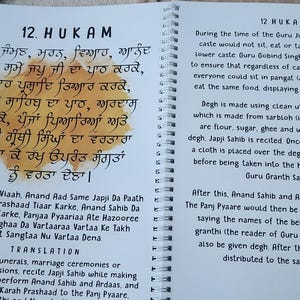 12. HUKAM
ਜੰਮਣ, ਮਰਨ, ਵਿਆਹ, ਆਨੰਦ
ਸਮੇਂ ਜਪੁ ਜੀ ਦਾ ਪਾਠ ਕਰਕੇ,
ਪ੍ਰਸ਼ਾਦਿ ਤਿਆਰ ਕਰਕੇ,
ਸਾਹਿਬ ਦਾ ਪਾਠ, ਅਰਦਾਸ
ਕੇ, ਪੰਜਾਂ ਪਿਆਰਿਆਂ ਅਤੇ
ਗ੍ਰੰਥੀ ਸਿੰਘਾਂ ਦਾ ਵਰਤਾਰਾ
ਕੇ ਰਖ ਉਪਰੰਤ ਸੰਗਤਾਂ
ਨੂੰ ਵਰਤਾ ਦੇਣਾ।
Viaah, Anand Aad Same Japji Da Paath
Prashaad Tiaar Karke, Anand Sahib Da
Karke, Panjaa Pyaariaa Ate Hazooree
Singhaa Da Vartaaraa Vartaa Ke Takh
Sangtaa Nu Vartaa Dena
TRANSLATION
funerals, marriage ceremonies or
sions, recite Japji Sahib while making
perform Anand Sahib and Ardaas, and
Karah Prashad to the Panj Pyaare,
12 HUKA
During the time of the Guru J
caste would not sit, eat or t
lower caste Guru Gobind Singh
to ensure that regardless of ca
everyone could sit in pangat t
eat the same food, displaying
Degh is made using clean
which is made from sarbloh (i
are flour, sugar, ghee and
degh, Japji Sahib is recited. Once
a cloth is placed over the deg
before being taken into the h
Guru Granth Sa
After this, Anand Sahib and A
The Panj Pyaare would then be
saying the names of the be
granthi (the reader of Guru
also be given degh. After th
distributed to the sa